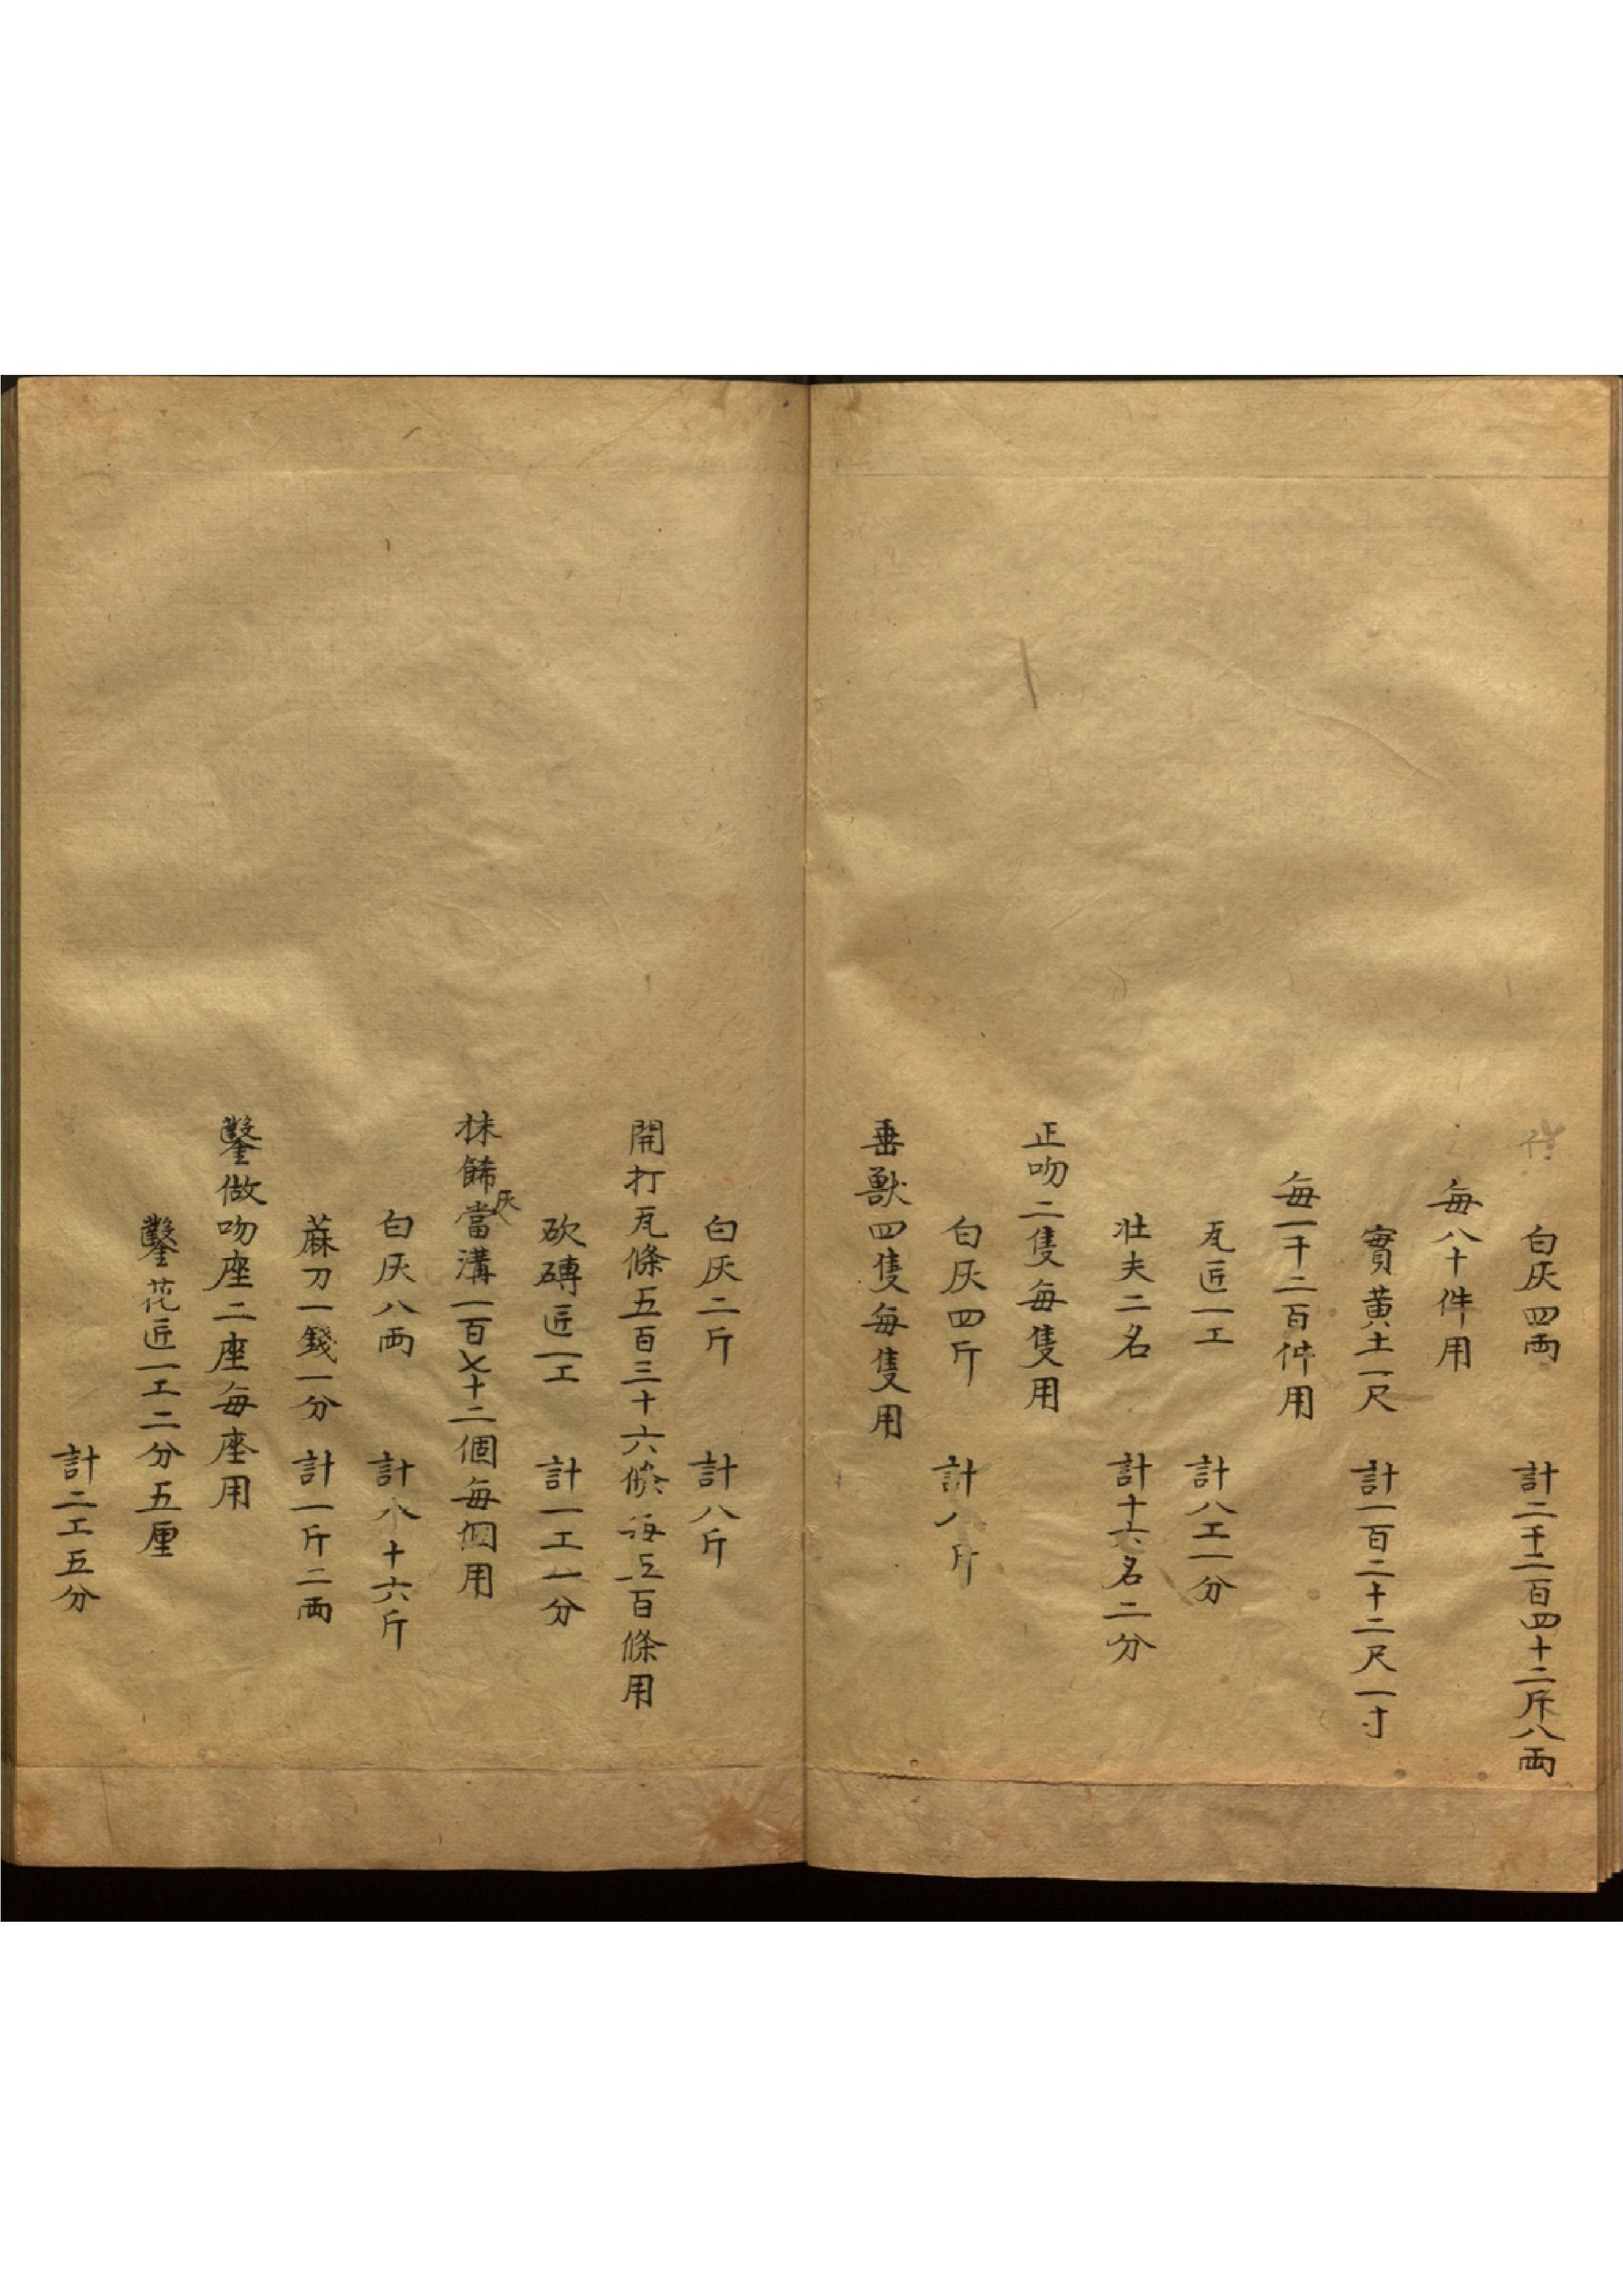 白灰四両　計二千二百四十二斤八両
每八十件用
實黃土一尺　計一百二十二尺一寸
每一千二百件用
瓦匠一工　計八工一分
壮夫二名　計十六名二分
正吻二隻每隻用
白灰四斤　計八斤
垂獸四隻每隻用
白灰二斤　計八斤
開打瓦條五百三十六條每五百條用
砍磚匠一工　計一工一分
抹餙灰當溝一百七十二個每個用
白灰八両　計八十六斤
蔴刀一錢一分　計一斤二両
鑿做吻座二座每座用
鑿花匠一工二分五厘
計二工五分